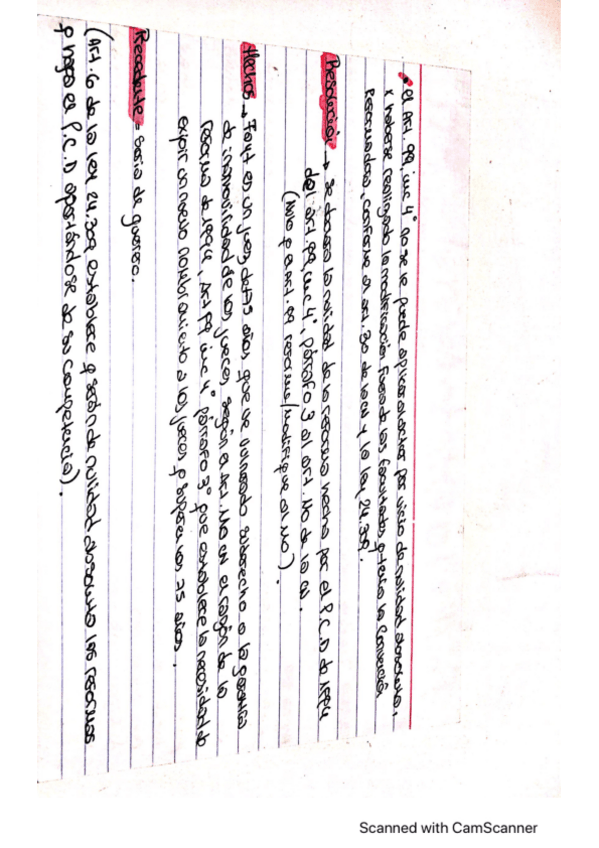 • El Art. 99, inc 4° no se le puede aplicar al actor por vicio de nulidad absoluta,
x haberse realizado la modificación fuera de las facultades q tenía la Convención
Reformadora, conforme al art. 30 de la CN y la ley 24.309.
Resolución → Se declara la nulidad de la reforma hecha por el P.C.D de 1994
del art. 99, inc 4°, párrafo 3 al art. 110 de la CN.
(Ato q el art. 99 reforme/modifique al 110).
Hechos → Fayt es un juez de 75 años, que ve vulnerado su derecho a la garantía
de inamovilidad de los jueces, según el Art. 110 CN en el razón de la
reforma de 1994, Art 99 inc 4° párrafo 3° que establece la necesidad de
exigir un nuevo nombramiento a los jueces q superen los 75 años.
Precedente = Soria de guerrero.
(Art. 6 de la ley 24.309 establece q serán de nulidad absoluta las reformas
q haga el P.C.D apartándose de su competencia).
Scanned with CamScanner